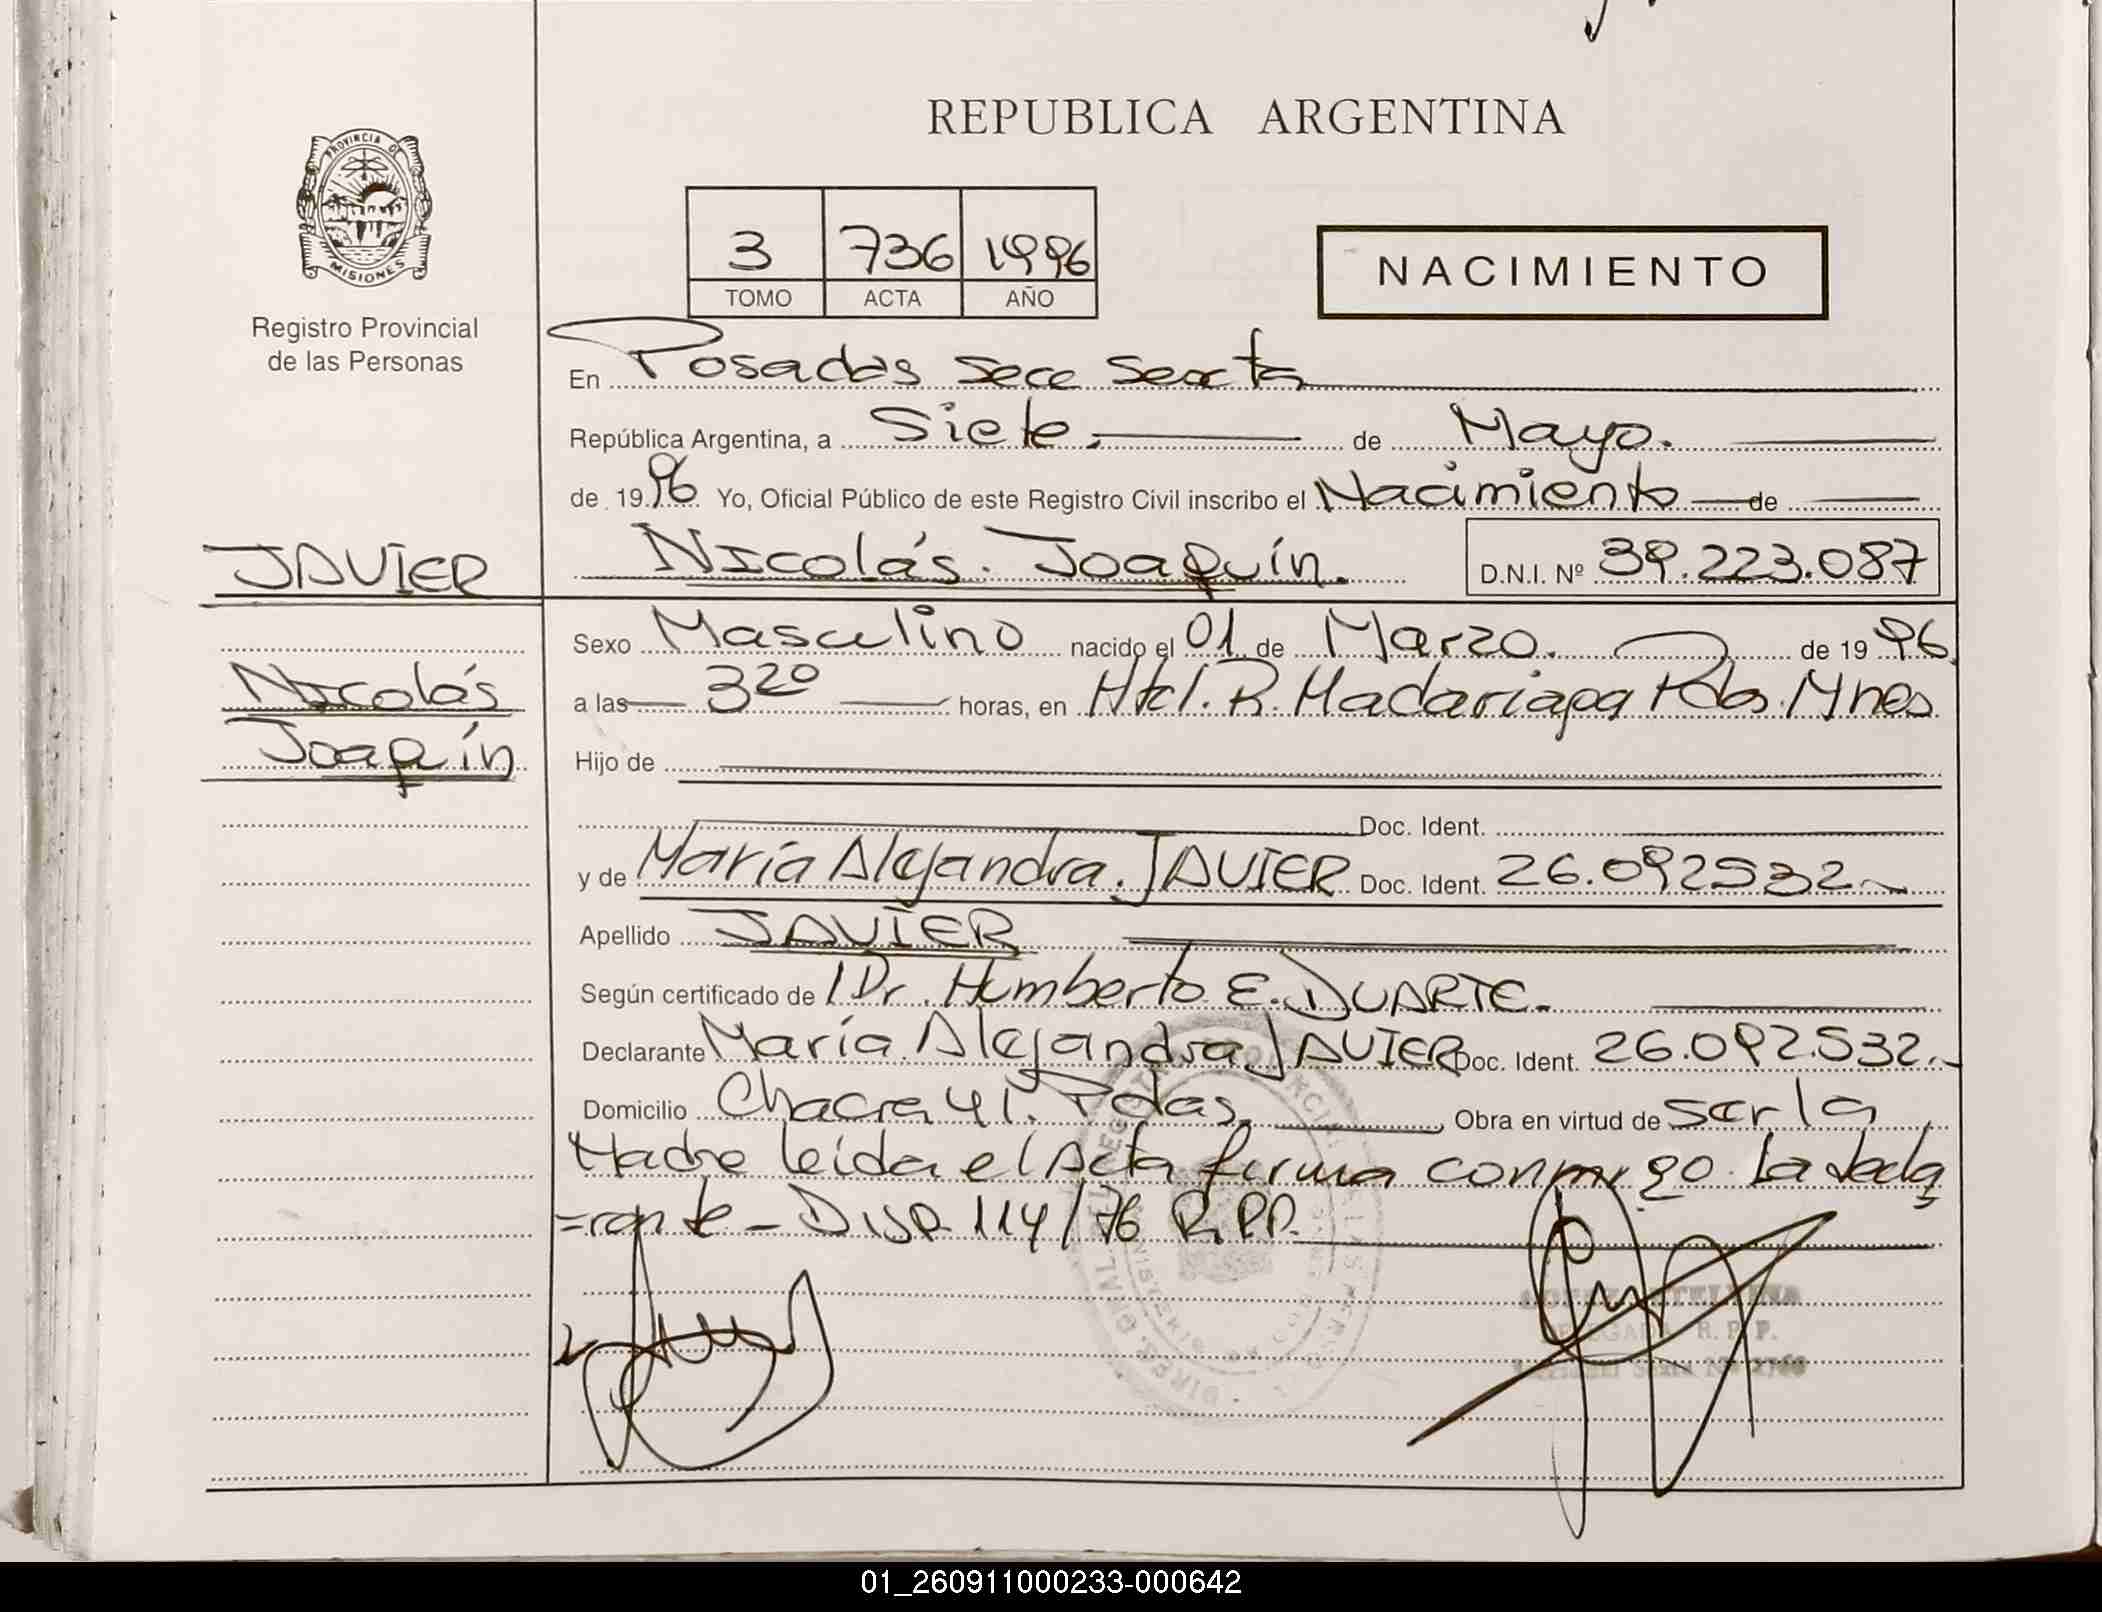 REPUBLICA ARGENTINA
PROVINCIA DE
MISIONES
Registro Provincial
de las Personas
3 736 1996
TOMO ACTA AÑO
NACIMIENTO
En Posadas Secc Sexta
República Argentina, a Siete de Mayo.
de 1996 Yo, Oficial Público de este Registro Civil inscribo el Nacimiento de
JAVIER
Nicolás Joaquín
Nicolás. Joaquín. D.N.I. Nº 39.223.087
Sexo Masculino nacido el 01 de Marzo. de 1996
a las 3 20 horas, en Htal. R. Madariaga Pdas. Mnes
Hijo de
Doc. Ident.
y de María Alejandra. JAVIER Doc. Ident. 26.092532
Apellido JAVIER
Según certificado de Dr. Humberto E. DUARTE.
Declarante María Alejandra JAVIER Doc. Ident. 26.092.532.
Domicilio Chacra 41. Pdas, Obra en virtud de ser la
Madre leida el Acta firma conmigo La decla
=rante - Disp. 114/76 R.P.P.
DELEGADA R. P. P.
01_260911000233-000642